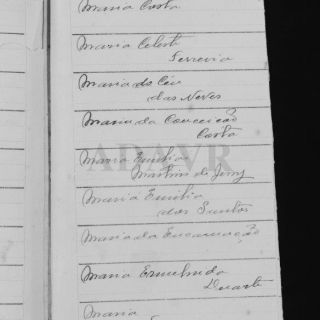 Maria Costa
Maria Celeste
Ferreira
Maria do Céu
das Neves
Maria da Conceição
Costa
ADAVR
Maria Emilia
Martins de
Maria Emilia
dos Santos
Maria da Encarnação
Maria Ermelinda
Duarte
Maria